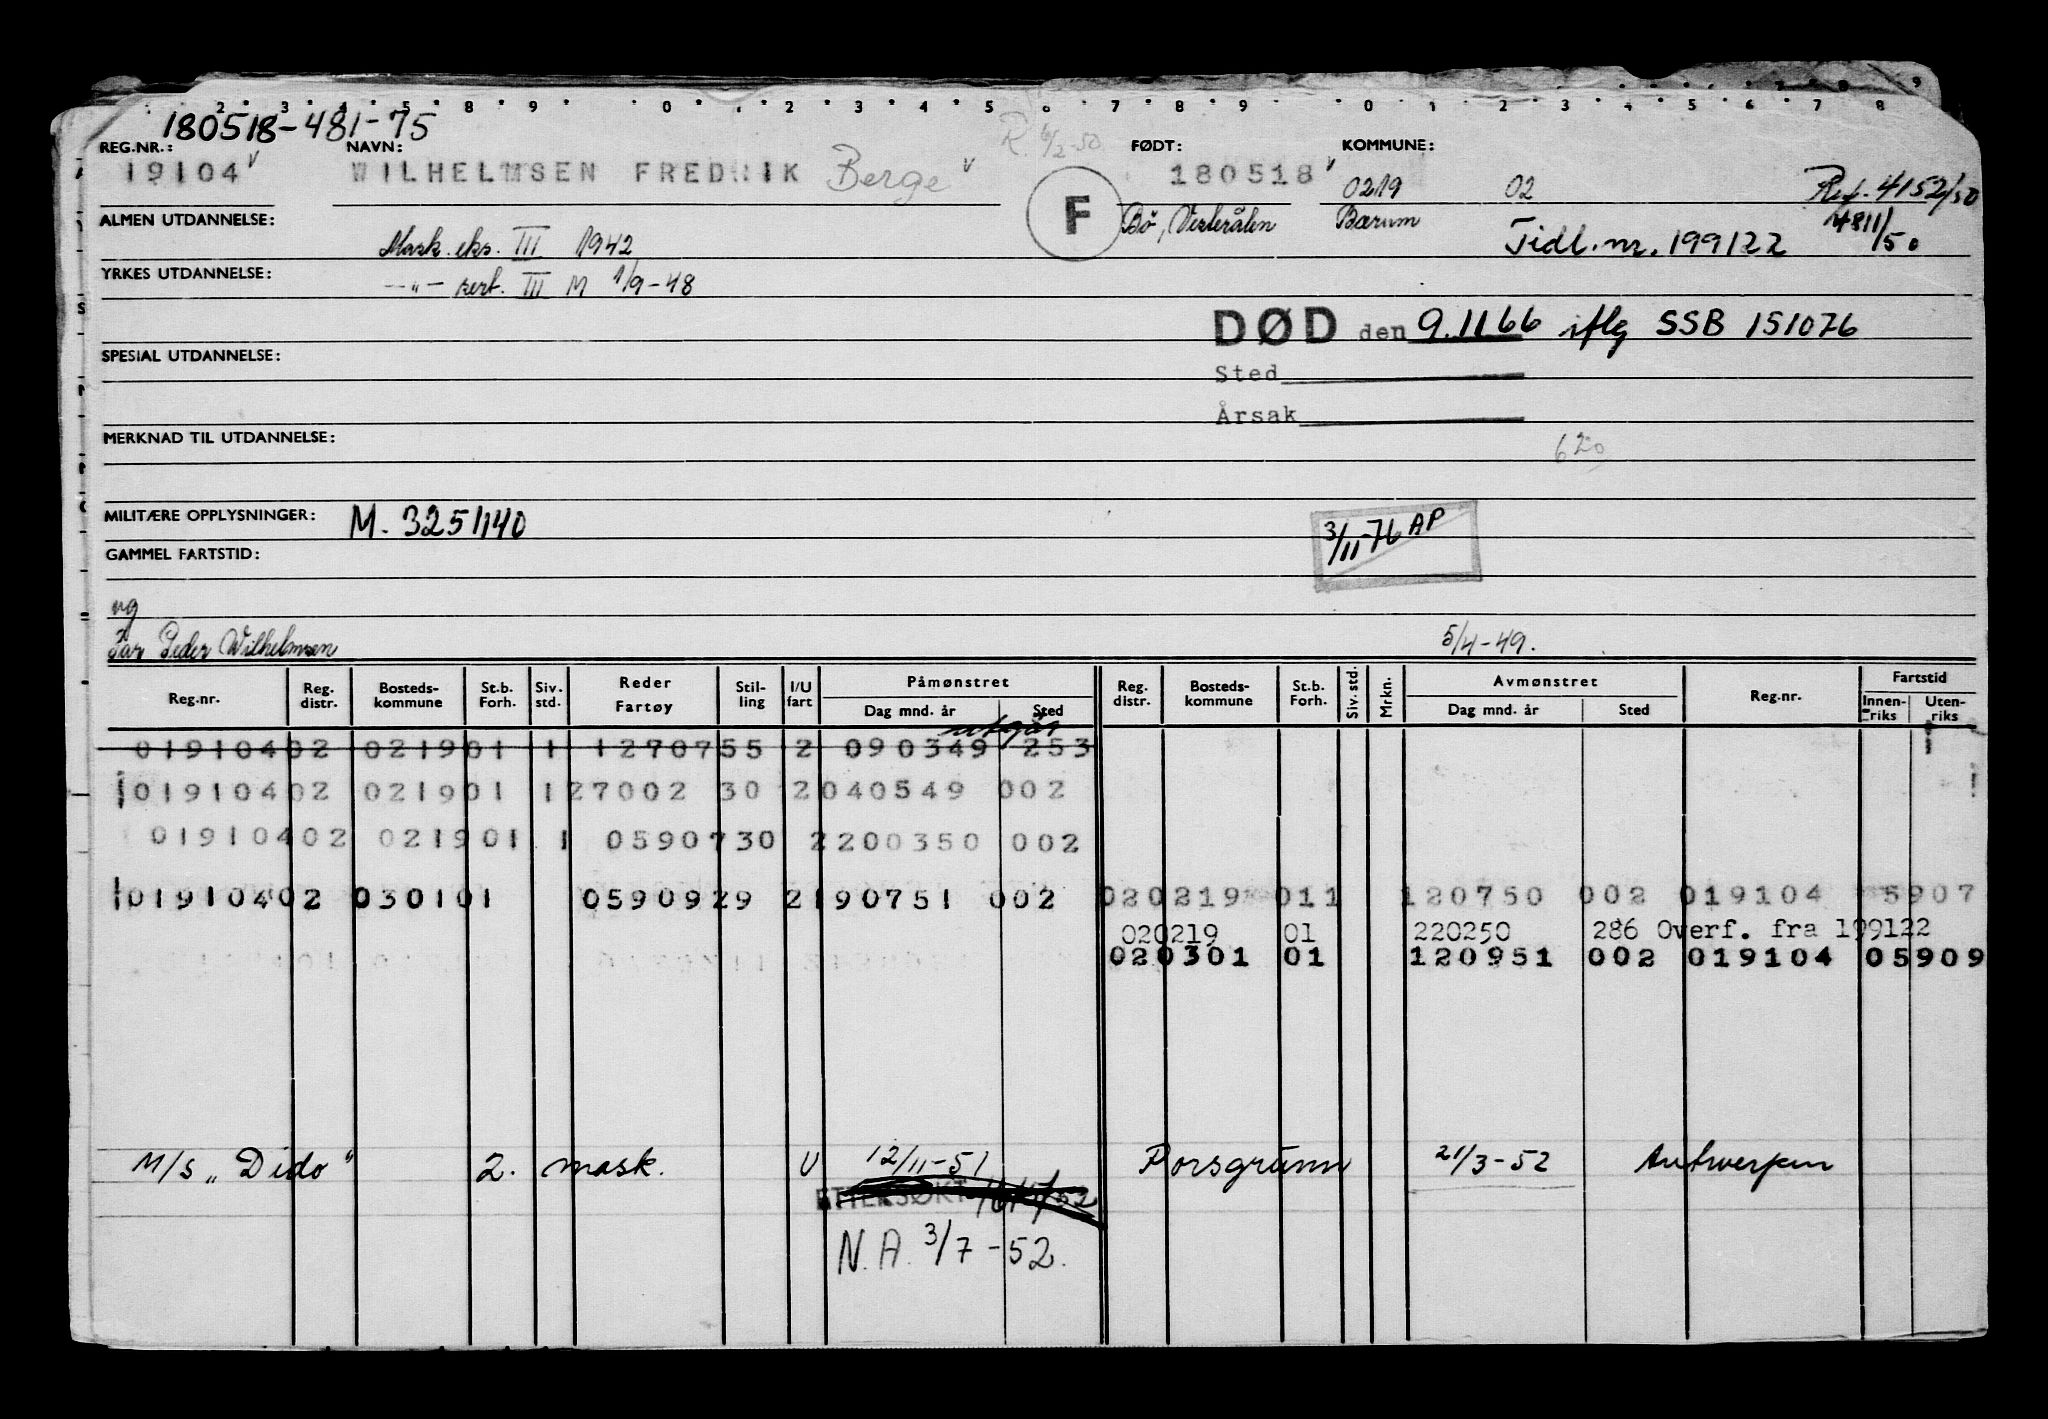 2 3 4 5 8 9 0 1 2 3 4 5 6 7 8 9 0 1 2 3 4 5 6 7 8 9
180518-481-75
REG.NR.: NAVN: FØDT: KOMMUNE:
19104 WILHELMSEN FREDRIK Berge 180518 0219 02 Ref. 4152/50
R. 6/2-50
F
Bö, Vesterålen Bærum
4811/50
Tidl. nr. 199122
ALMEN UTDANNELSE:
Mask. eks. III 1942
YRKES UTDANNELSE:
—„— sert. III M 1/9-48
DØD den 9.11 66 iflg SSB 151076
SPESIAL UTDANNELSE:
Sted
Årsak
MERKNAD TIL UTDANNELSE:
620
MILITÆRE OPPLYSNINGER: M. 3251140
3/11-76 AP
GAMMEL FARTSTID:
ug
Far Peder Wilhelmsen 5/4-49.
Reg.nr. Reg. distr. Bosteds-kommune St.b. Forh. Siv. std. Reder Fartøy Stil-ling I/U fart Påmønstret Dag mnd. år Sted Reg. distr. Bosteds-kommune St.b. Forh. Siv. std. Mrkn. Avmønstret Dag mnd. år Sted Reg.nr. Fartstid Innen-riks Uten-riks
utgår
01910402 021901 1 1270755 2 090349 253
01910402 021901 127002 30 2040549 002
01910402 021901 1 0590730 2200350 002
01910402 030101 0590929 2190751 002 020219 011 120750 002 019104 5907
020219 01 220250 286 Overf. fra 199122
020301 01 120951 002 019104 05909
M/s „Dido" 2. mask. U 12/11-51 Porsgrunn 21/3-52 Antwerpen
ETTERSØKT
N.A. 3/7-52.